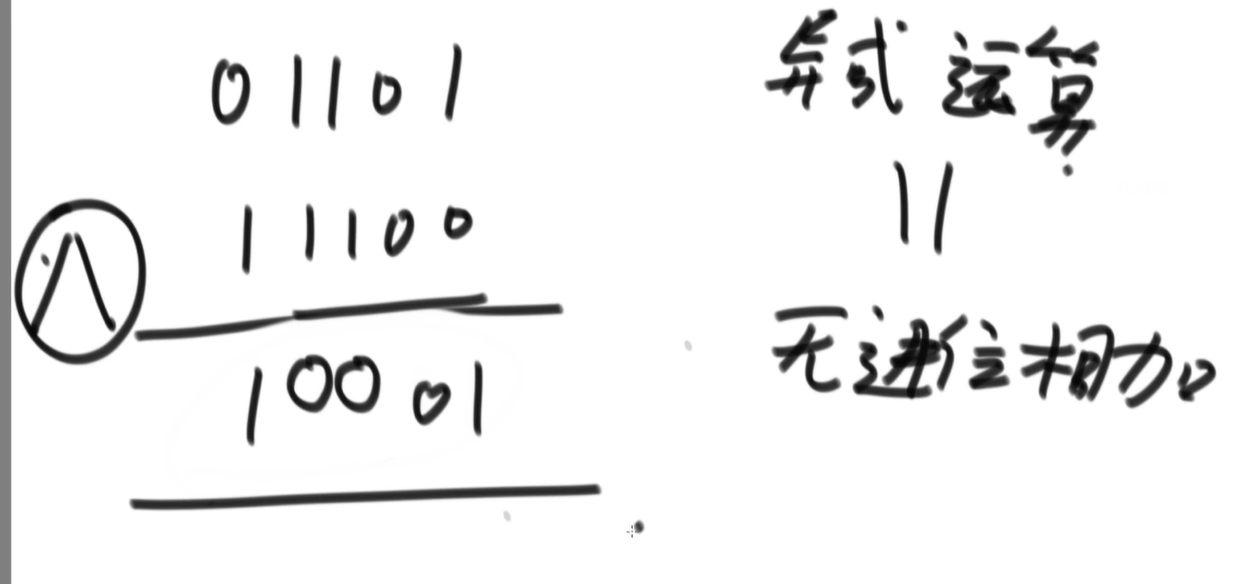 01101
11100
^
10001
异式运算
=
无进位相加